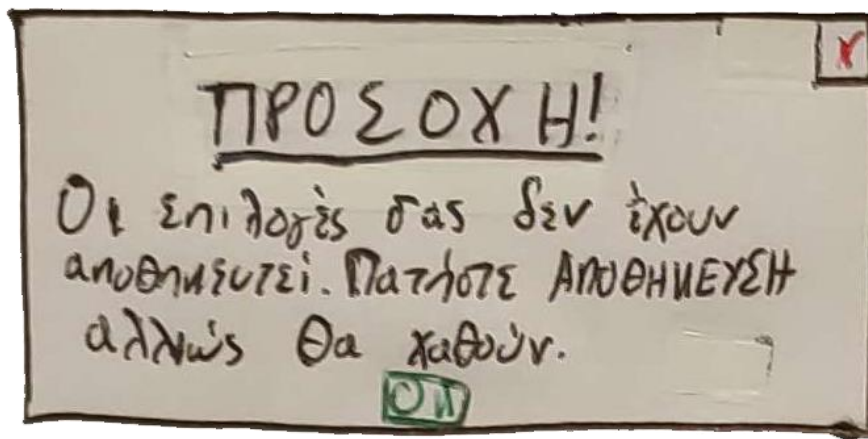 X
ΠΡΟΣΟΧΗ!
Οι επιλογές σας δεν έχουν
αποθηκευτεί. Πατήστε ΑΠΟΘΗΚΕΥΣΗ
αλλιώς θα χαθούν.
ΟΚ